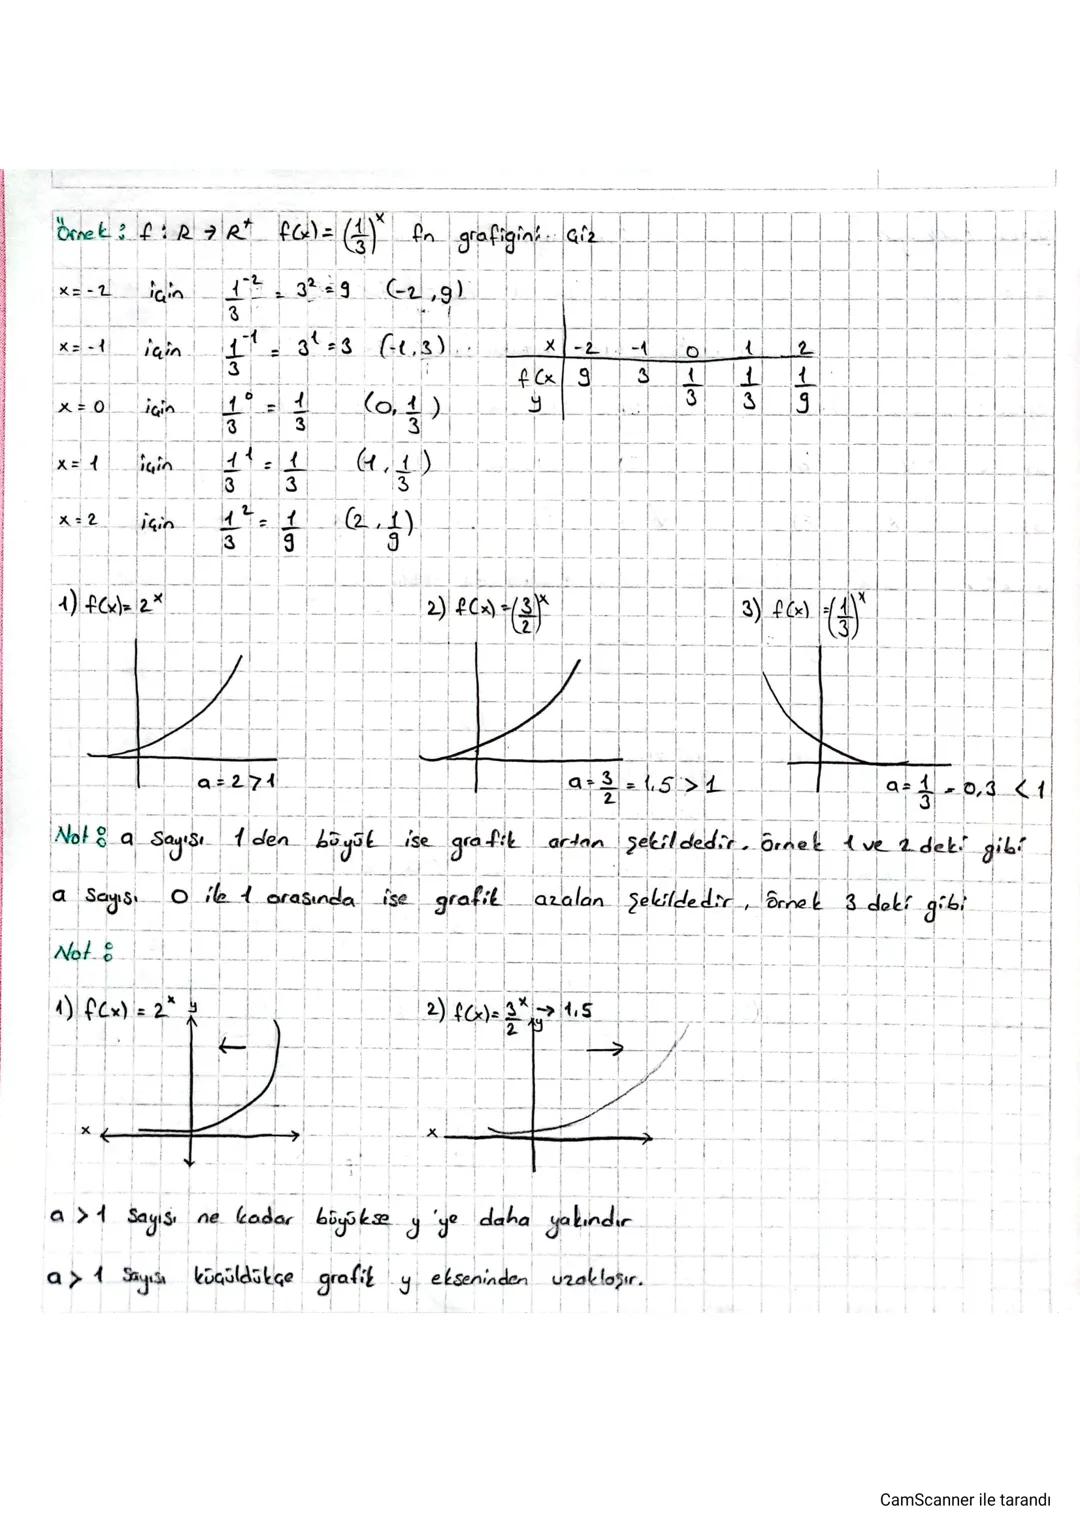 Örnek : f : R → R⁺ f(x) = (1/3)ˣ fn grafiğini çiz
x = -2 için 1/3⁻² = 3² = 9 (-2, 9)
x = -1 için 1/3⁻¹ = 3¹ = 3 (-1, 3)
x = 0 için 1/3⁰ = 1/3 (0, 1/3)
x = 1 için 1/3¹ = 1/3 (1, 1/3)
x = 2 için 1/3² = 1/9 (2, 1/9)
x -2 -1 0 1 2
f(x 9 3 1/3 1/3 1/9
y
1) f(x) = 2ˣ 2) f(x) = (3/2)ˣ 3) f(x) = (1/3)ˣ
a = 2 > 1 a = 3/2 = 1,5 > 1 a = 1/3 = 0,3 < 1
Not : a sayısı 1 den büyük ise grafik artan şekildedir. örnek 1 ve 2 deki gibi
a sayısı 0 ile 1 arasında ise grafik azalan şekildedir, örnek 3 deki gibi
Not :
1) f(x) = 2ˣ y 2) f(x) = 3/2ˣ → 1,5
y
x x
a > 1 sayısı ne kadar büyükse y 'ye daha yakındır
a > 1 sayısı küçüldükçe grafik y ekseninden uzaklaşır.
CamScanner ile tarandı